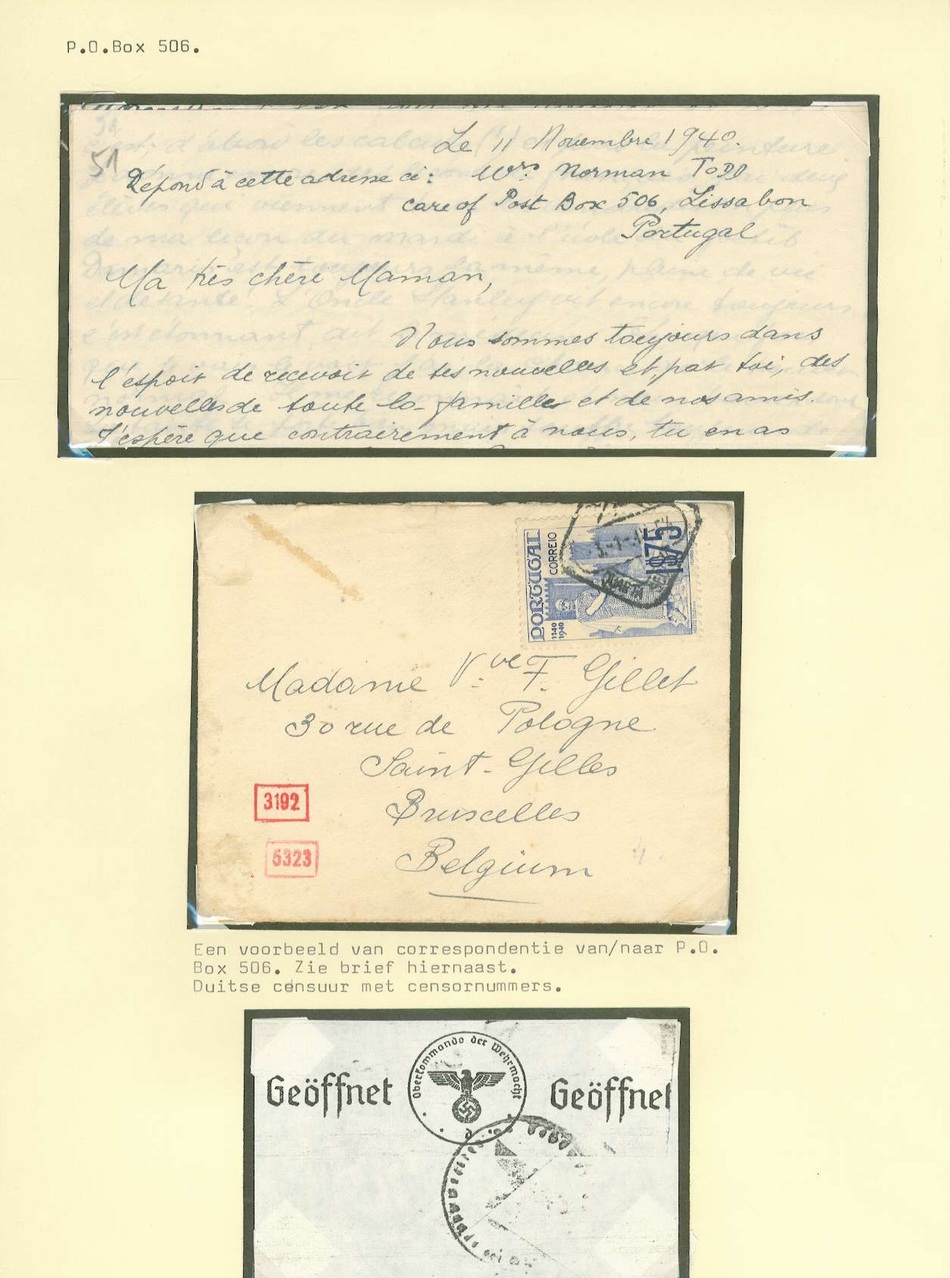 P.O.Box 506.
51
Le 11 Novembre 1940.
Répond à cette adresse ci: Mrs Norman TODD
care of Post Box 506, Lissabon
Portugal
Ma très chère Maman,
Nous sommes toujours dans
l'espoir de recevoir de tes nouvelles et, par toi, des
nouvelles de toute la famille et de nos amis.
J'espère que contrairement à nous, tu en as
PORTUGAL
CORREIO
1140
1940
1$75
Madame Vve F. Gillet
30 rue de Pologne
Saint-Gilles
Bruxelles
Belgium
3192
5323
Een voorbeeld van correspondentie van/naar P.O.
Box 506. Zie brief hiernaast.
Duitse censuur met censornummers.
Geöffnet
Oberkommando der Wehrmacht
d
Geöffnet